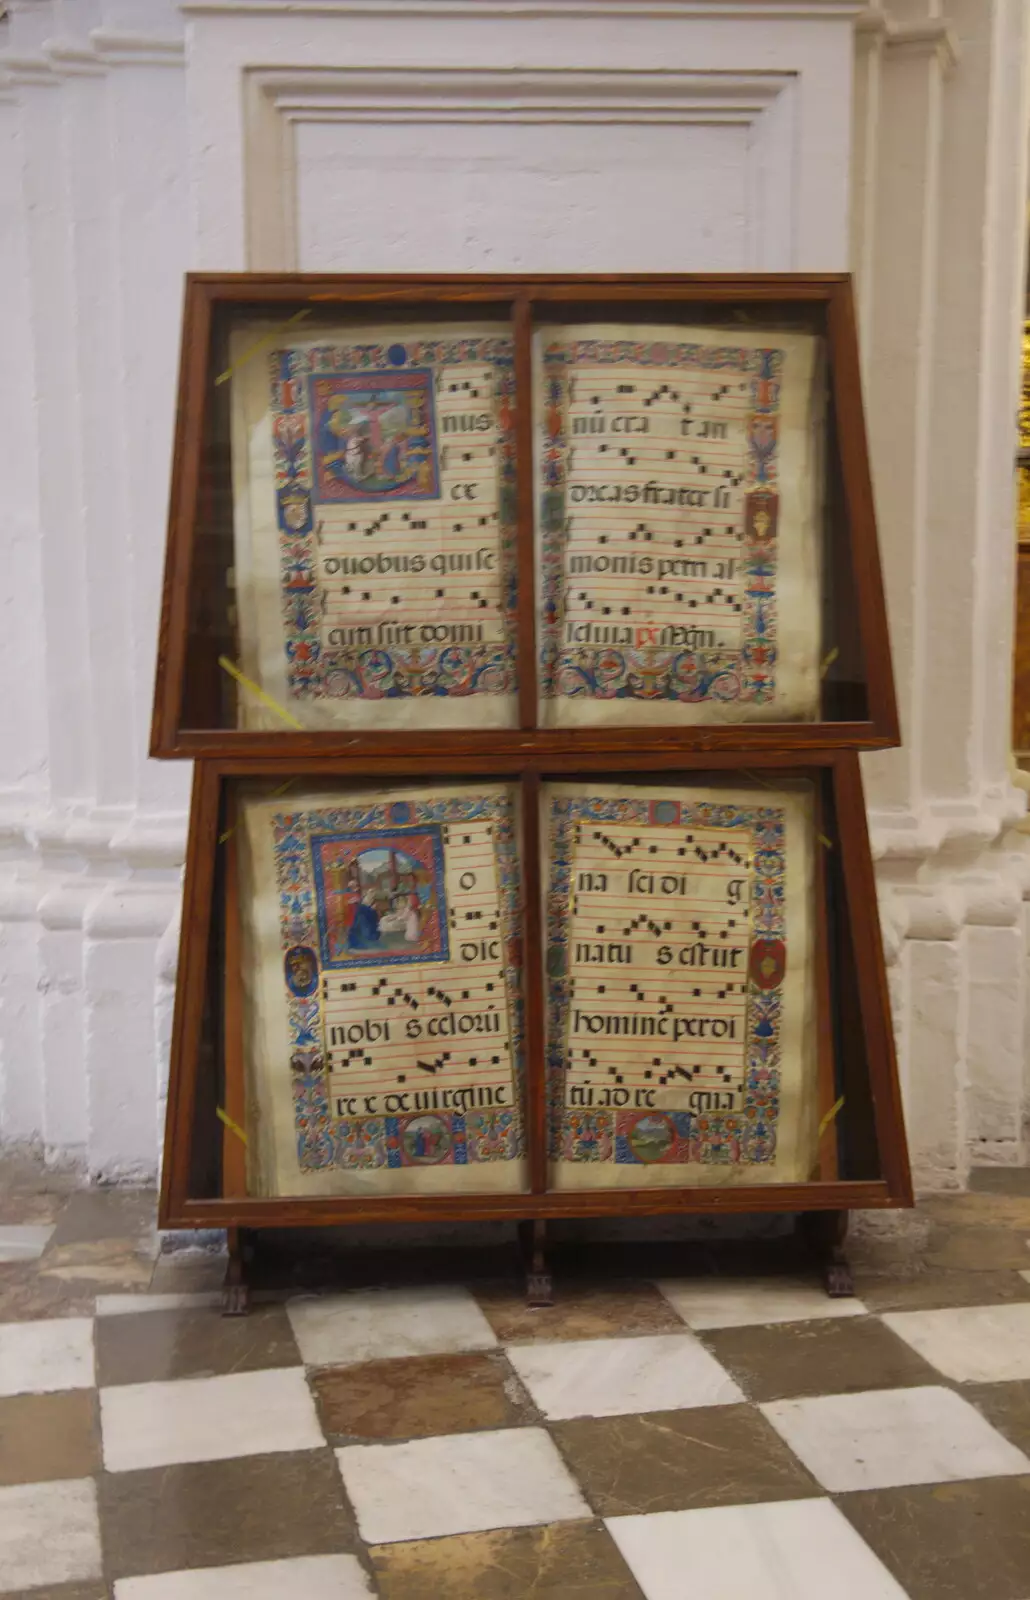 nus
ex
duobus qui se
cuti sūt domi
nū erat an
dreas frater si
monis petri al
leluia
o
die
nobi s celorū
re x de uirgine
na sci di g
natu s est ut
hominē perdi
tū ad re gna